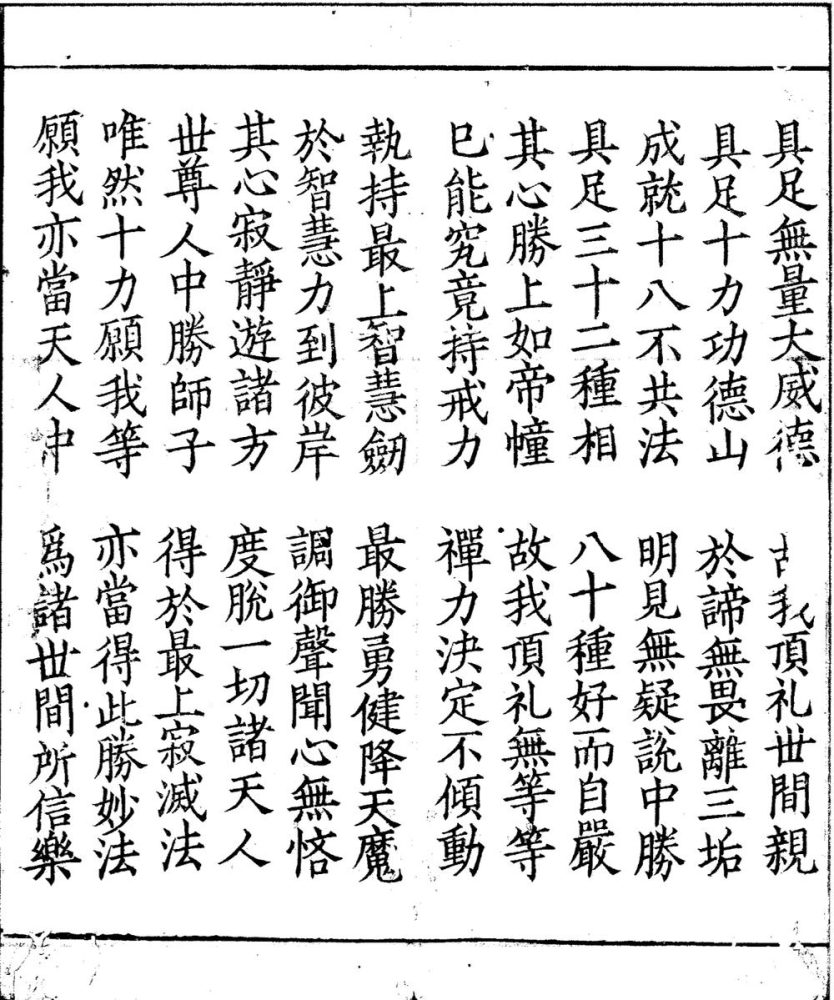 具足無量大威德 我頂礼世間親
具足十力功德山 於諦無畏離三垢
成就十八不共法 明見無疑說中勝
具足三十二種相 八十種好而自嚴
其心勝上如帝幢 故我頂礼無等等
已能究竟持戒力 禪力決定不傾動
執持最上智慧劒 最勝勇健降天魔
於智慧力到彼岸 調御聲聞心無悋
其心寂靜遊諸方 度脫一切諸天人
世尊人中勝師子 得於最上寂滅法
唯然十力願我等 亦當得此勝妙法
願我亦當天人中 爲諸世間所信樂